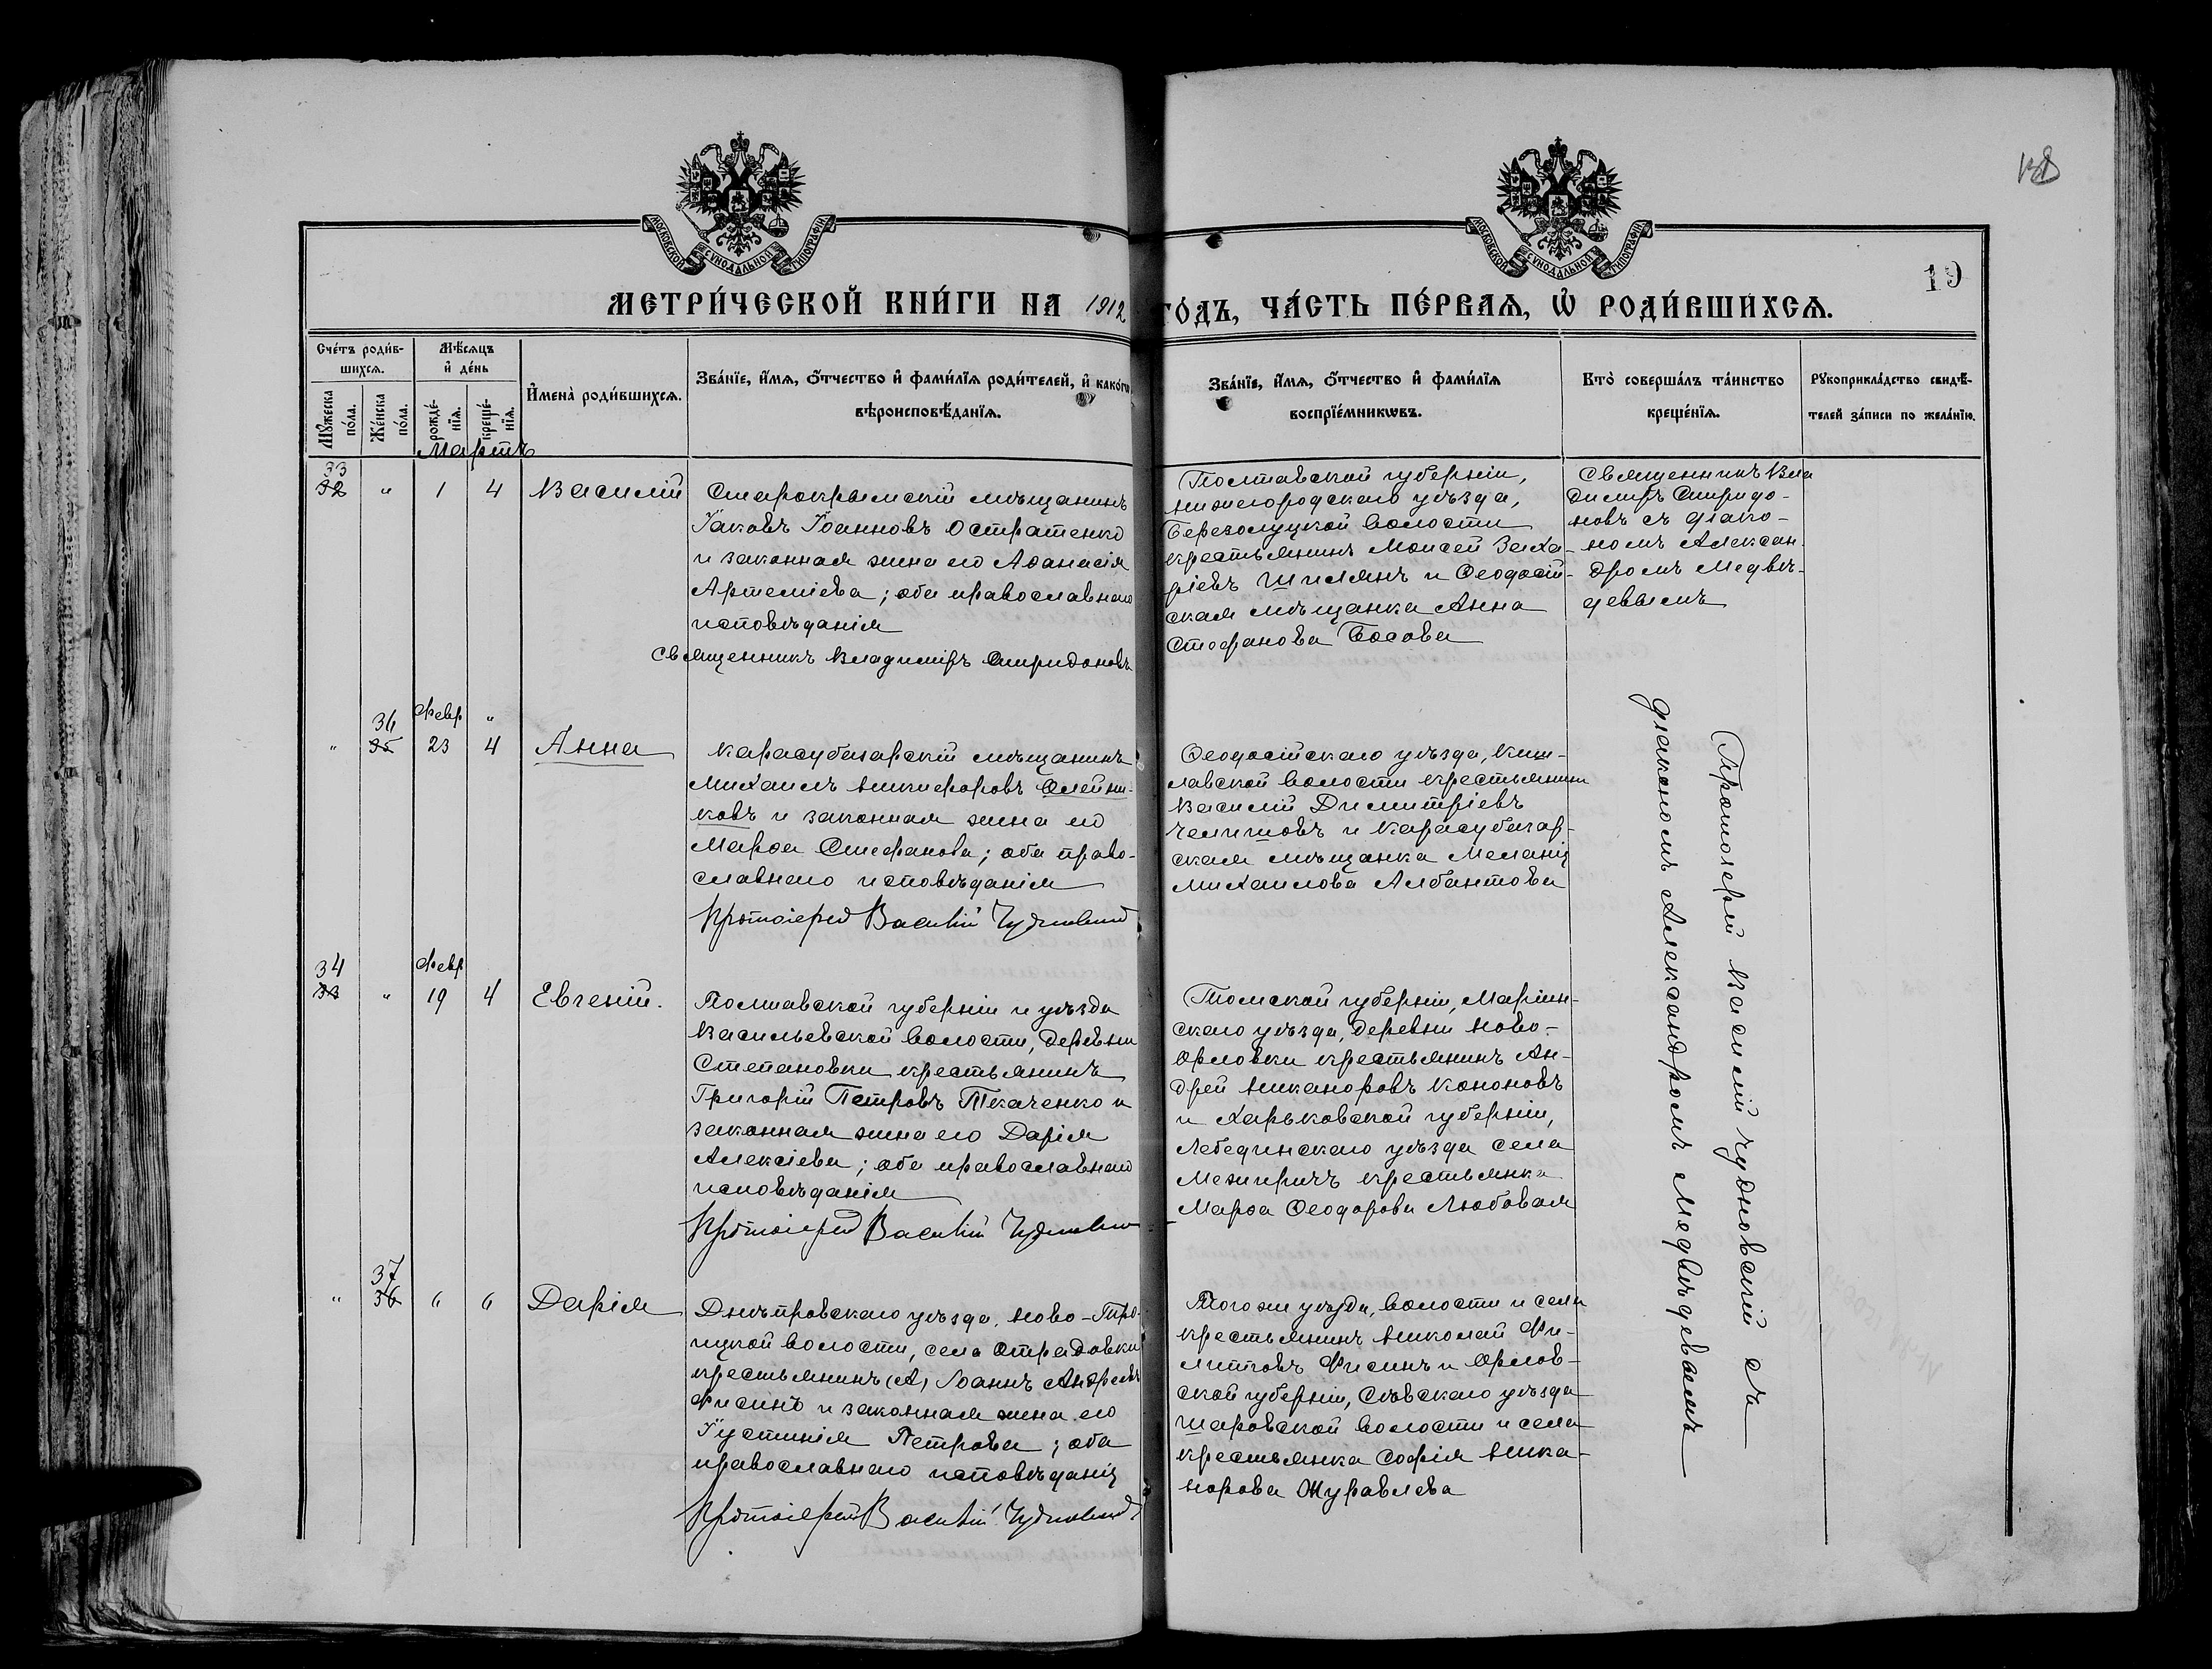 138
МОСКОВСКОЙ СѴНОДАЛЬНОЙ ТИПОГРАФІИ
МОСКОВСКОЙ СѴНОДАЛЬНОЙ ТИПОГРАФІИ
19
МЕТРИ́ЧЕСКОЙ КНИ́ГИ НА 1912 ГО́ДЪ, ЧА́СТЬ ПЕ́РВАѦ, Ѡ҆ РОДИ́ВШИХСѦ.
Сче́тъ роди́в-
шихсѧ.
Мꙋ́жеска по́ла.
Же́нска по́ла.
Мѣ́сѧцъ
и҆ де́нь
рожде́-
нїѧ.
креще́-
нїѧ.
И҆мена̀ роди́вшихсѧ.
Зва́нїе, и҆́мѧ, ѻ҆́тчество и҆ фами́лїѧ роди́телей, и҆ како́гѡ
вѣроисповѣ́данїѧ.
Зва́нїе, и҆́мѧ, ѻ҆́тчество и҆ фами́лїѧ
воспрїе́мникѡвъ.
Кто̀ соверша́лъ та́инство
креще́нїѧ.
Рꙋкоприкла́дство свидѣ́-
телей за́писи по жела́нїю.
Мартъ
33
32 " 1 4 Василій
Старокрымскій мѣщанинъ
Іаковъ Іоанновъ Остратенко
и законная жена его Аѳанасія
Артеміева; оба православнаго
исповѣданія
Священникъ Владиміръ Спиридоновъ
Полтавской губерніи,
Березолуцкой волости
крестьянинъ Моисей Заха-
ріевъ Шилянъ и Ѳеодосій-
ская мѣщанка Анна
Стефанова Босова
Священникъ Вла
диміръ Спиридо-
новъ съ діако-
номъ Алексан-
дромъ Медвѣ-
девымъ
36 Февр "
" 35 23 4 Анна
Карасубазарскій мѣщанинъ
Михаилъ Никифоровъ Олейни-
ковъ и законная жена его
Марѳа Стефанова; оба право-
славнаго исповѣданія
Протоіерей Василій Чудновскій
Ѳеодосійскаго уѣзда, Киш-
лавской волости крестьянинъ
Василій Димитріевъ
Челишовъ и Карасубазар-
ская мѣщанка Меланія
Михаилова Албантова
Протоіерей Василій Чудновскій съ
діакономъ Александромъ Медвѣдевымъ
34 Февр
33 " 19 4 Евгеній.
Полтавской губерніи и уѣзда
Васильевской волости, деревни
Степановки крестьянинъ
Григорій Петровъ Ткаченко и
законная жена его Дарія
Алексіева; оба православнаго
исповѣданія
Протоіерей Василій Чудновскій
Томской губерніи, Маріин-
скаго уѣзда, деревни Ново-
Орловки крестьянинъ Ан-
дрей Никаноровъ Кононовъ
и Харьковской губерніи,
Лебединскаго уѣзда села
Межиричъ крестьянка
Марѳа Ѳеодорова Любовая
37
" 36 " " Дарія
Днѣпровскаго уѣзда, Ново-Тро-
ицкой волости, села Отрадовки
крестьянинъ (А) Іоаннъ Андреевъ
Фисинъ и законная жена его
Іустинія Петрова; оба
православнаго исповѣданія
Протоіерей Василій Чудновскій
Того же уѣзда, волости и села
крестьянинъ Николай Фи-
липповъ Фисинъ и Орлов-
ской губерніи, Сѣвскаго уѣзда
Шаровской волости и села
крестьянка Софія Ника-
норова Журавлева